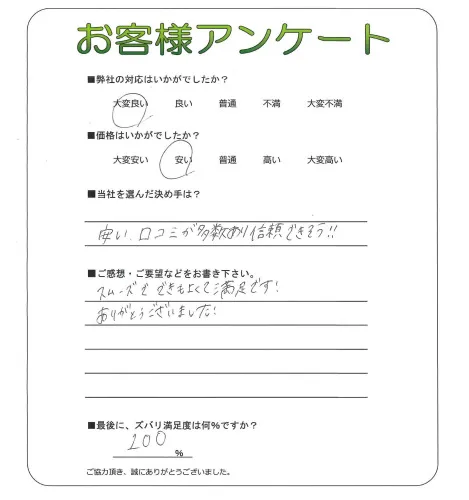 お客様アンケート
■弊社の対応はいかがでしたか？
大変良い 良い 普通 不満 大変不満
■価格はいかがでしたか？
大変安い 安い 普通 高い 大変高い
■当社を選んだ決め手は？
安い、口コミが多数あり信頼できそう!!
■ご感想・ご要望などをお書き下さい。
スムーズで できもよくて満足です!
ありがとうございました!
■最後に、ズバリ満足度は何%ですか？
200
%
ご協力頂き、誠にありがとうございました。